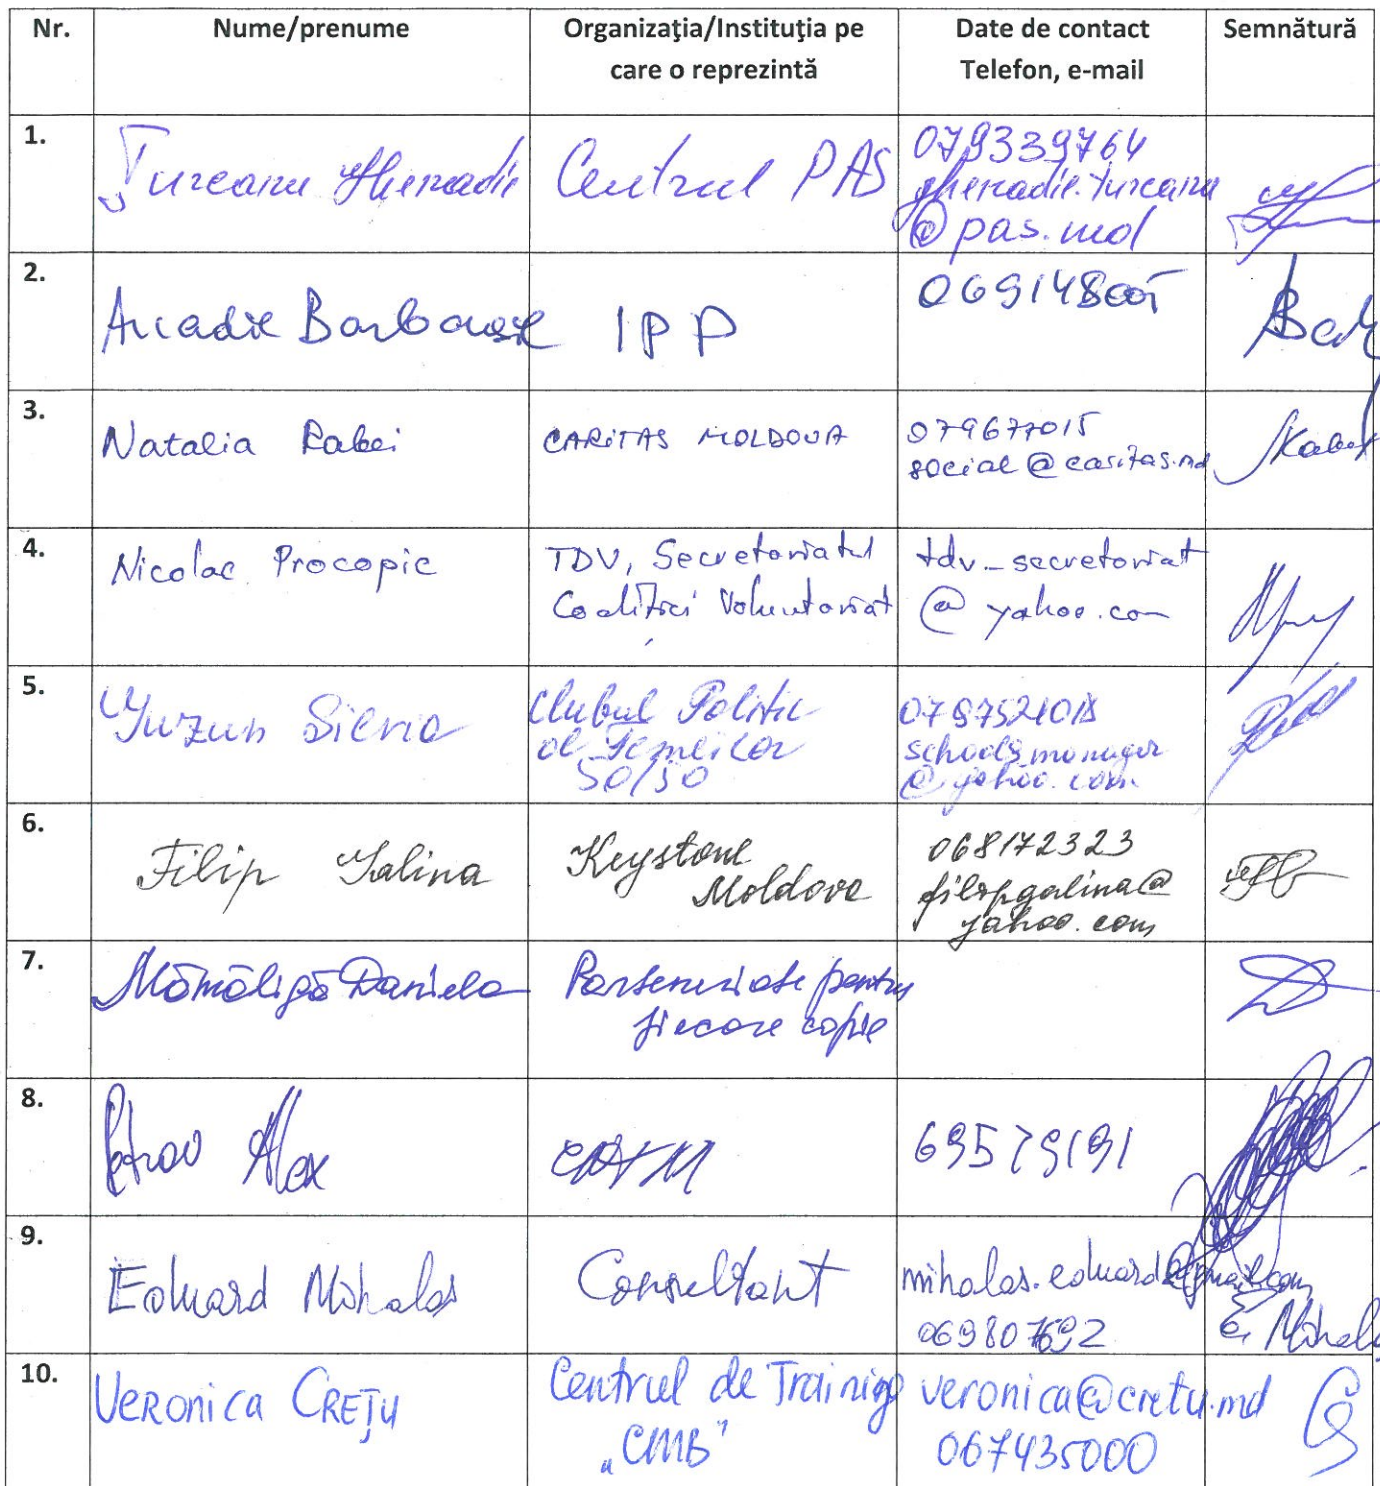 Nr. Nume/prenume Organizaţia/Instituţia pe Date de contact Semnătură
care o reprezintă Telefon, e-mail
1. Țurcanu Ghenadie Centrul PAS 079339764
ghenadie.turcanu
@pas.md
2. Arcadie Barbarosie IPP 069148005
3. Natalia Rabei CARITAS MOLDOVA 079677015
social@caritas.md
4. Nicolae Procopie TDV, Secretariatul tdv_secretariat
Coaliției Voluntariat @yahoo.com
5. Guzun Silvia Clubul Politic
al Femeilor schoolsmanager
50/50 @yahoo.com
6. Filip Galina Keystone 068172323
Moldova filipgalina@
yahoo.com
7. Mămăligă Daniela Parteneriate pentru
fiecare copil
8. Petrov Alex 69579191
9. Eduard Mihalas Consultant mihalas.eduard@gmail.com
E. Mihalas
10. Veronica CREȚU Centrul de Training veronica@cretu.md
„CMB” 067435000